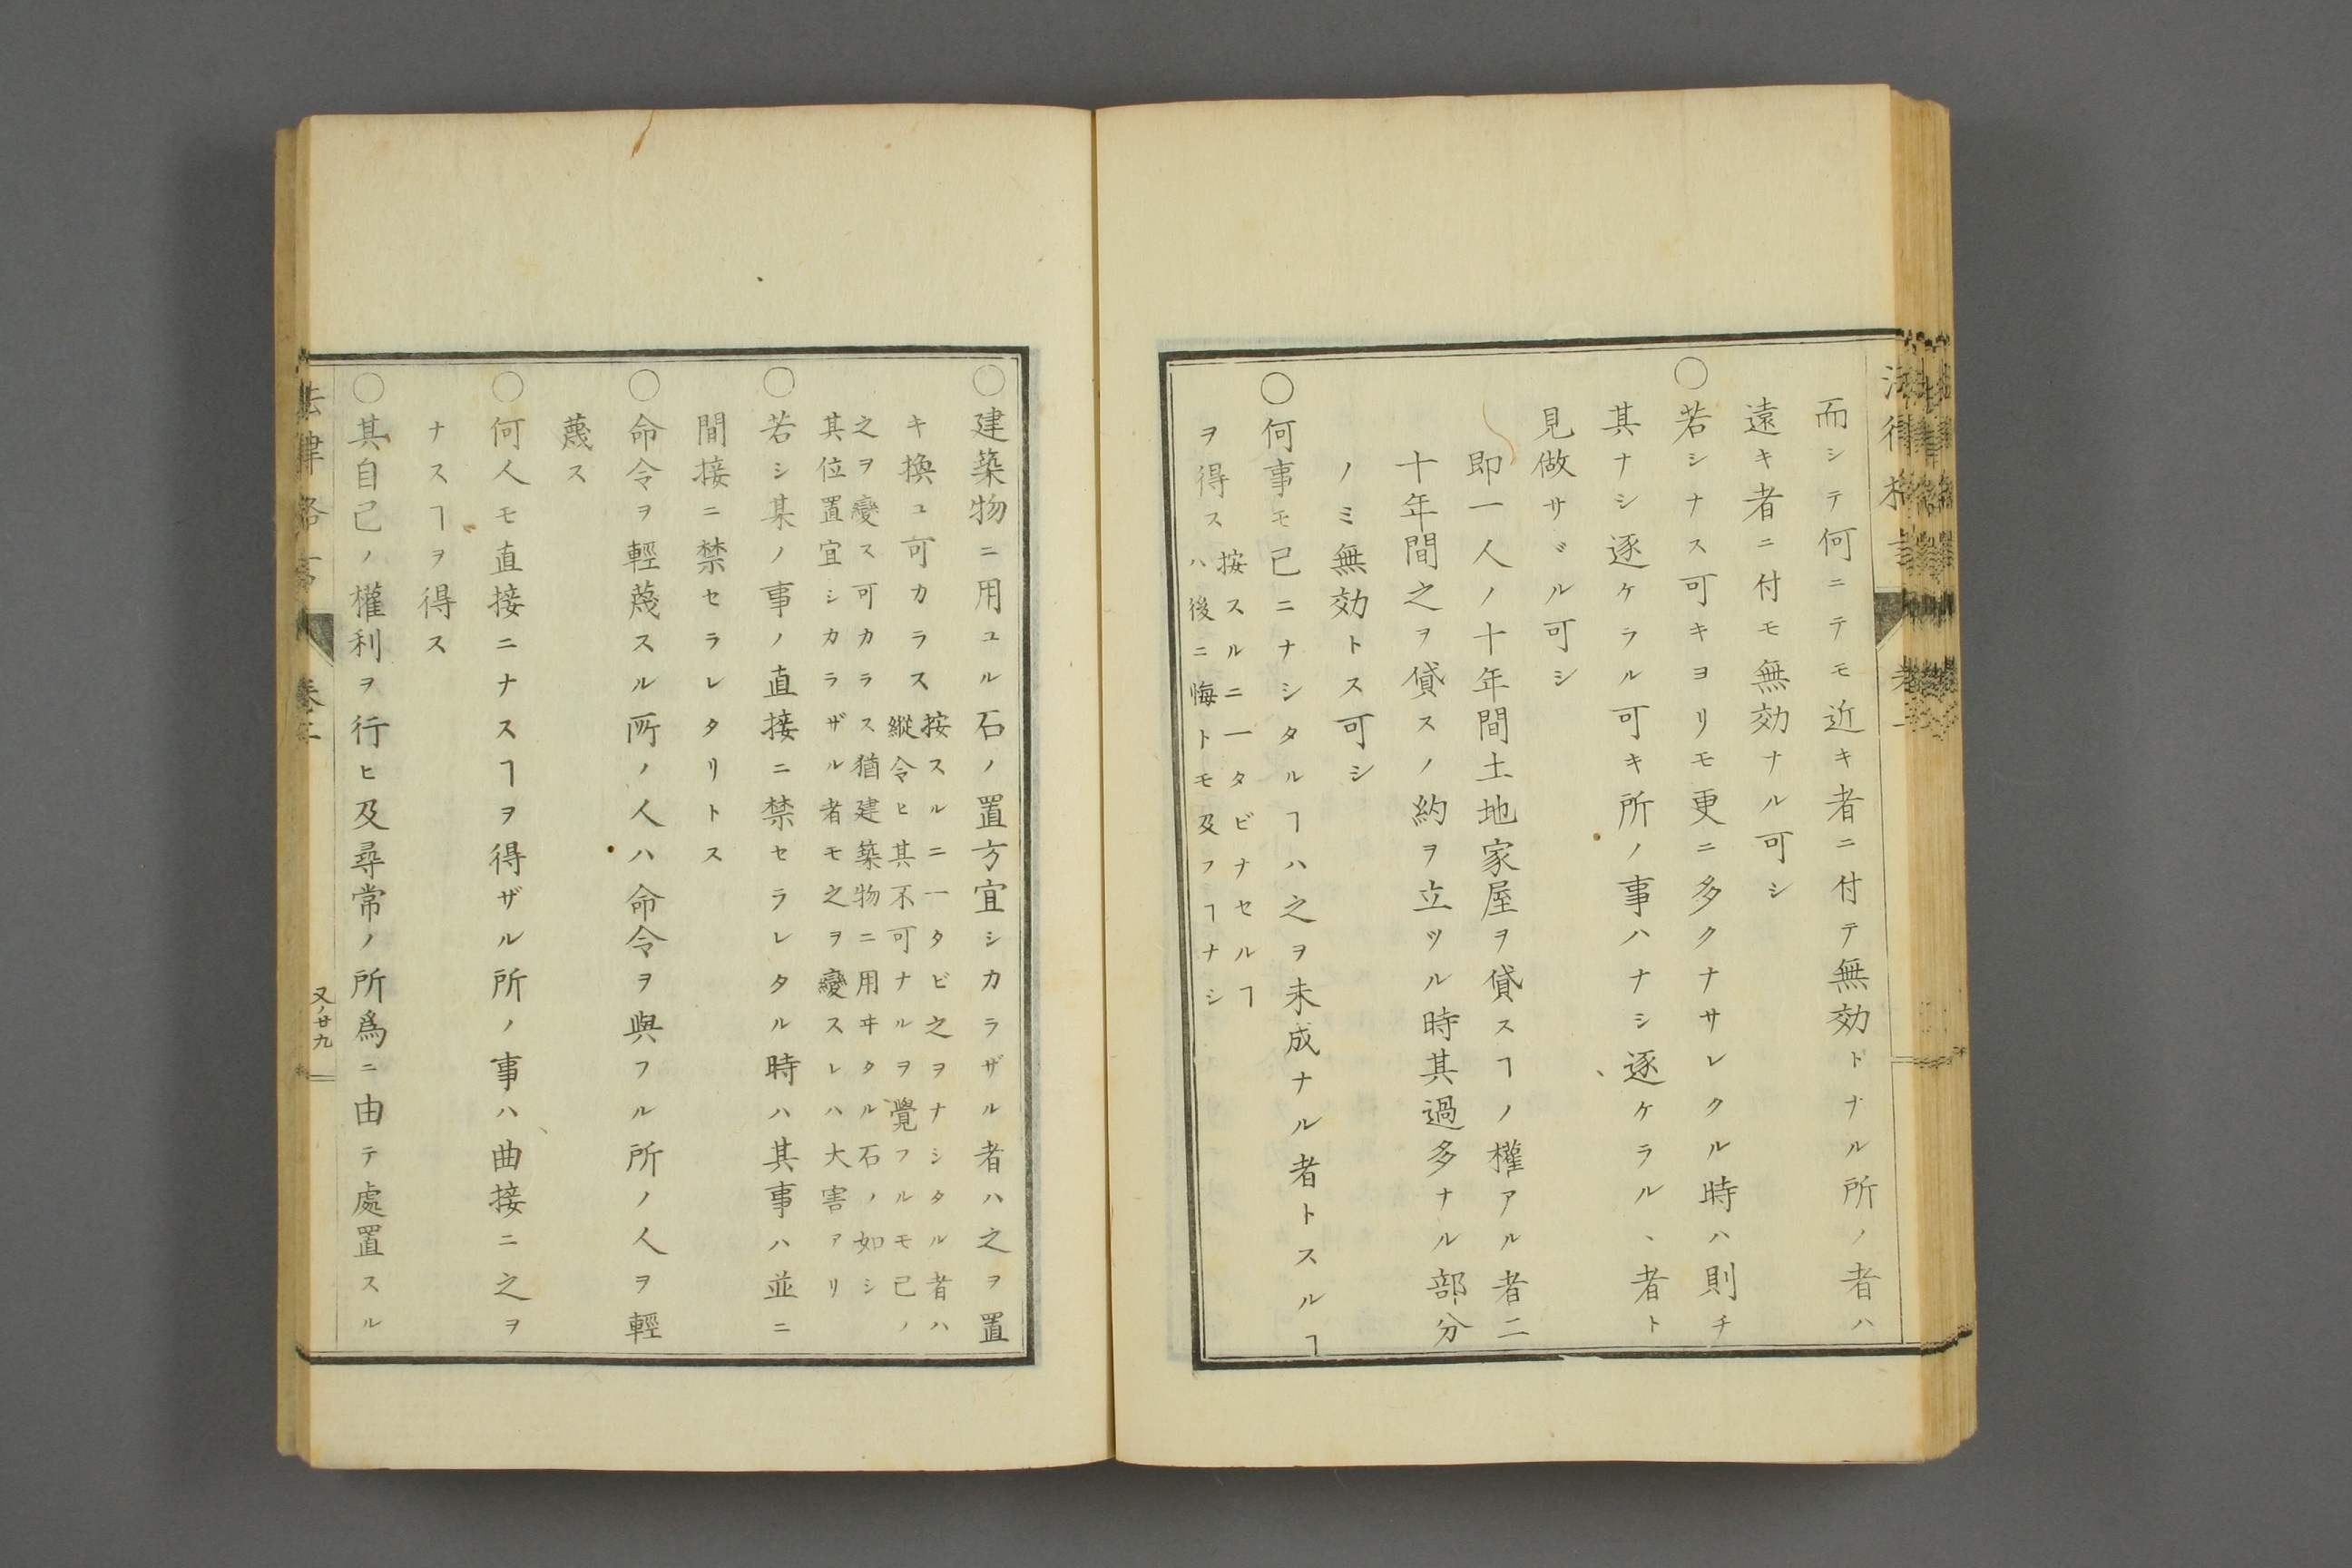 而シテ何ニテモ近キ者ニ付テ無効トナル所ノ者ハ
遠キ者ニ付モ無効ナル可シ
○若シナス可キヨリモ更ニ多クナサレクル時ハ則チ
其ナシ逐ケラル可キ所ノ事ハナシ逐ケラル、者ト
見做サヾル可シ
即一人ノ十年間土地家屋ヲ貸スヿノ權アル者二
十年間之ヲ貸スノ約ヲ立ツル時其過多ナル部分
ノミ無効トス可シ
○何事モ已ニナシタルヿハ之ヲ未成ナル者トスルヿ
ヲ得ス
按スルニ一タビナセルヿ
ハ後ニ悔トモ及フヿナシ
○建築物ニ用ユル石ノ置方宜シカラザル者ハ之ヲ置
キ換ユ可カラス
按スルニ一タビ之ヲナシタル者ハ
縱令ヒ其不可ナルヲ覺フルモ已ノ
之ヲ變ス可カラス猶建築物ニ用ヰタル石ノ如シ
其位置宜シカラザル者モ之ヲ變スレハ大害アリ
○若シ某ノ事ノ直接ニ禁セラレタル時ハ其事ハ並ニ
間接ニ禁セラレタリトス
○命令ヲ輕蔑スル所ノ人ハ命令ヲ與フル所ノ人ヲ輕
蔑ス
○何人モ直接ニナスヿヲ得ザル所ノ事ハ曲接ニ之ヲ
ナスヿヲ得ス
○其自己ノ權利ヲ行ヒ及尋常ノ所爲ニ由テ處置スル
法律格言
又ノ廿九